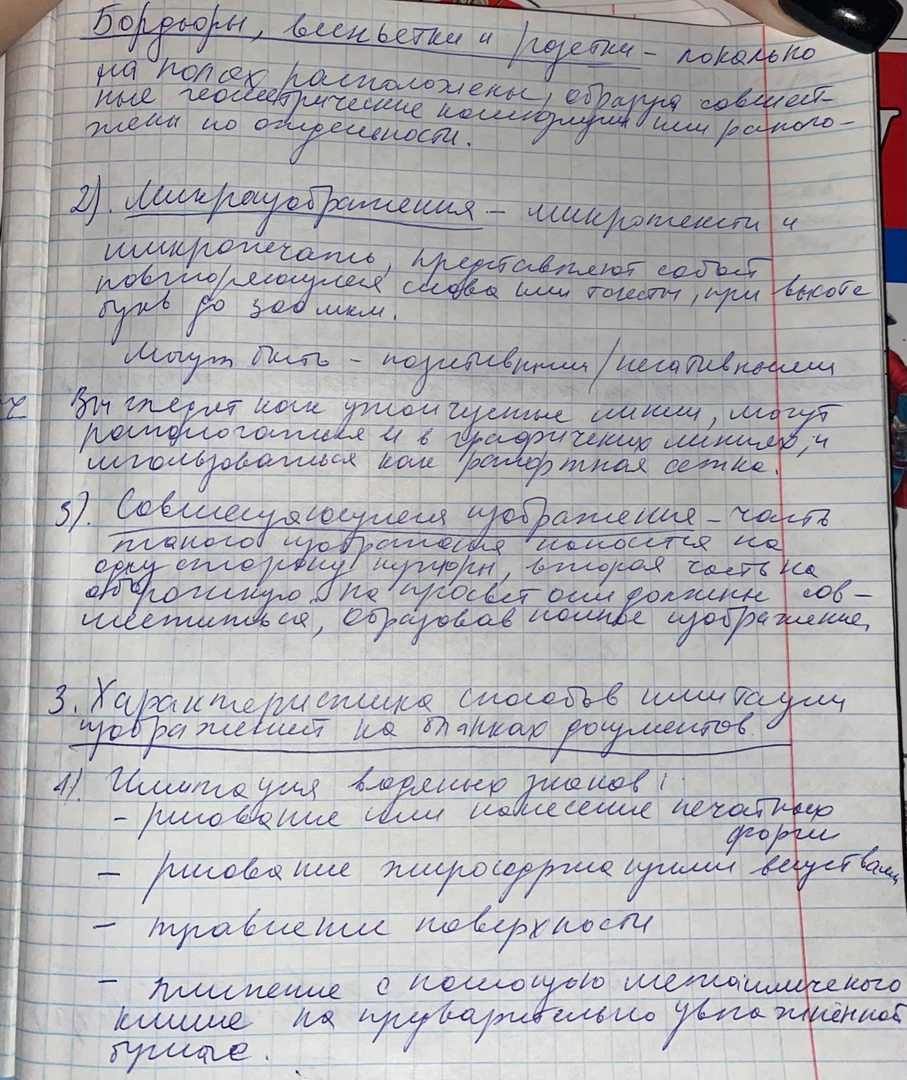 Бордюры, виньетки и розетки – локально
на полях расположены, образуя совмест-
ные геометрические композиции или распо-
жены по отдельности.
2). Микроизображения – микротексты и
микропечать, представляют собой
повторяющиеся слова или тексты, при высоте
букв до 300 мкм.
Могут быть – позитивными/негативными
Выглядят как утолщенные линии, могут
располагаться и в графических линиях, и
использоваться как растровая сетка.
3). Совмещающиеся изображения – часть
такого изображения наносится на
одну сторону купюры, вторая часть на
оборотную. На просвет они должны сов-
меститься, образовав полное изображение,
3. Характеристика способов имитации
изображений на бланках документов.
1). Имитация водяных знаков:
– рисование или нанесение печатных
форм
– рисование жиросодержащими веществами
– травление поверхности
– тиснение с помощью металлического
клише на предварительно увлажнённой
бумаге.